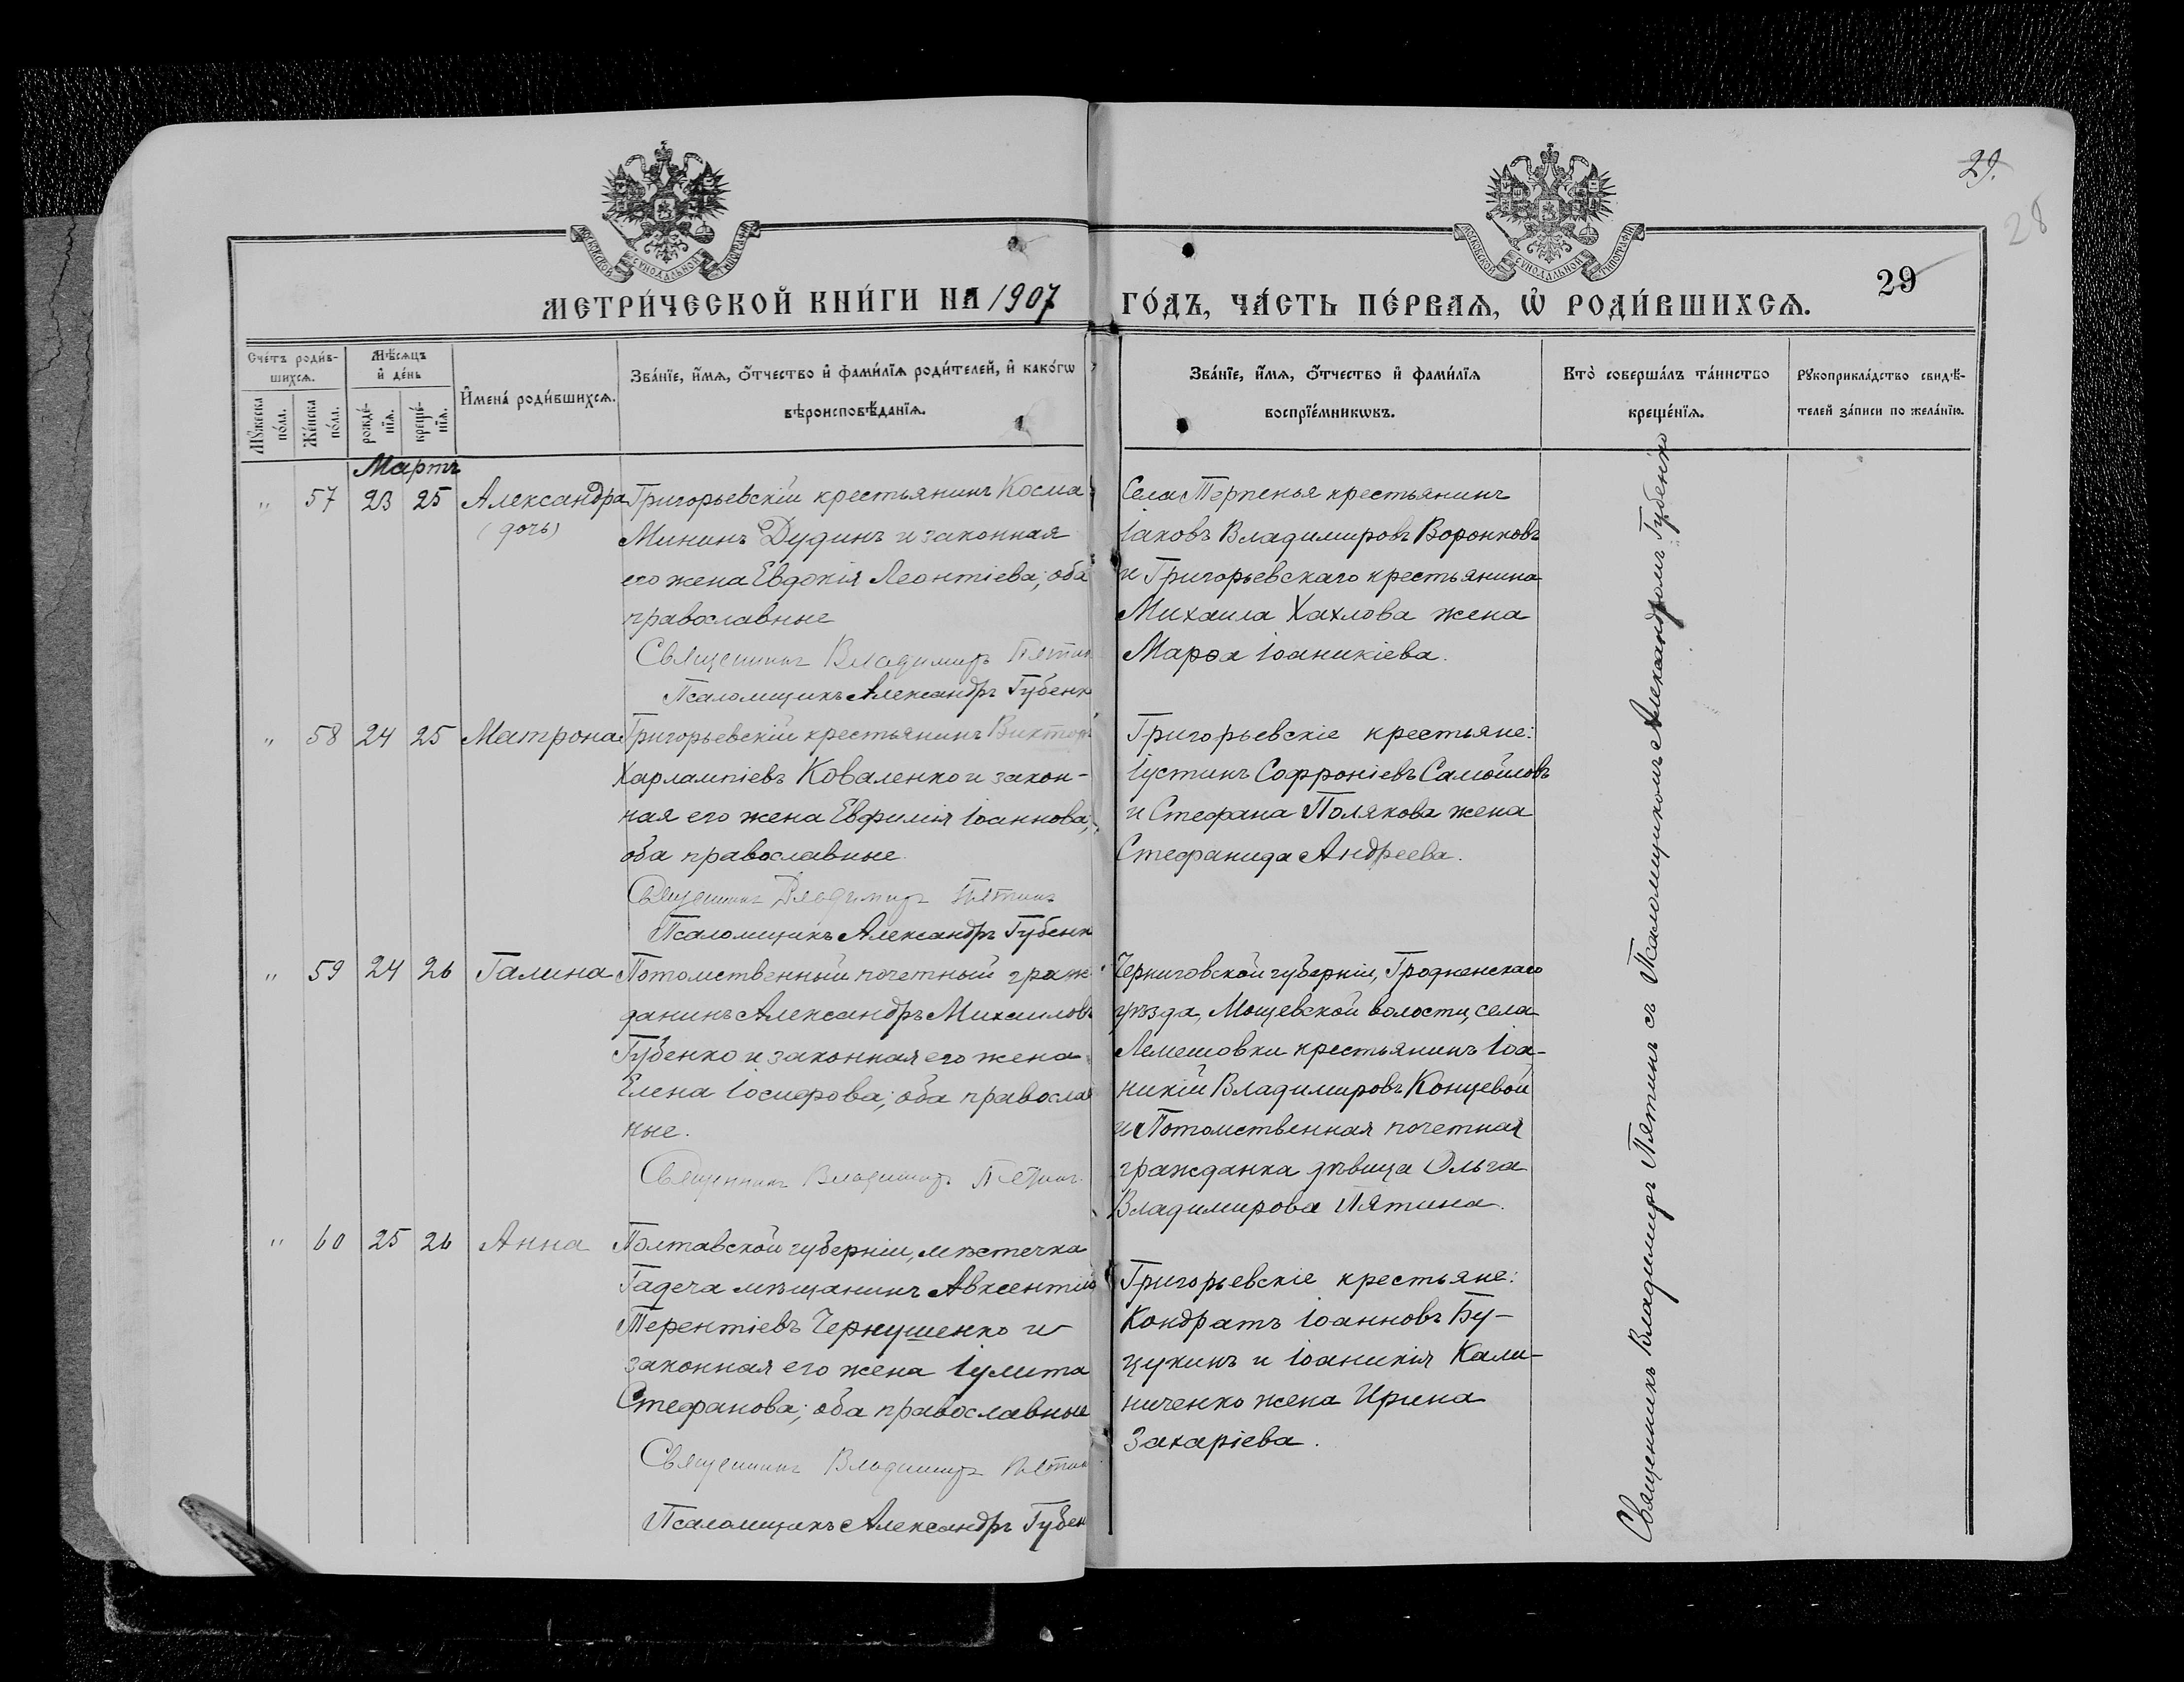 29.
28
МОСКОВСКОЙ СѴНОДАЛЬНОЙ ТИПОГРАФІИ
МОСКОВСКОЙ СѴНОДАЛЬНОЙ ТИПОГРАФІИ
МЕТРИ́ЧЕСКОЙ КНИ́ГИ НА 1907 ГО́ДЪ, ЧА́СТЬ ПЕ́РВАѦ, Ѡ҆ РОДИ́ВШИХСѦ.
29
Сче́тъ роди́в-
шихсѧ.
Мꙋ́жеска по́ла.
Же́нска по́ла.
Мѣ́сѧцъ
и҆ де́нь
рожде́-
нїѧ.
креще́-
нїѧ.
И҆мена̀ роди́вшихсѧ.
Зва́нїе, и҆́мѧ, ѻ҆́тчество и҆ фами́лїѧ роди́телей, и҆ како́гѡ
вѣроисповѣ́данїѧ.
Зва́нїе, и҆́мѧ, ѻ҆́тчество и҆ фами́лїѧ
воспрїе́мникѡвъ.
Кто̀ соверша́лъ та́инство
креще́нїѧ.
Рꙋкоприкла́дство свидѣ́-
телей за́писи по жела́нїю.
Мартъ
" 57 23 25 Александра
(дочь)
Григорьевскій крестьянинъ Косма
Мининъ Дудинъ и законная
его жена Евдокія Леонтіева; оба
православные
Священникъ Владимиръ Пятин
Псаломщикъ Александръ Губенк
Села Терпенья крестьянинъ
Іаковъ Владимировъ Воронковъ
и Григорьевскаго крестьянина
Михаила Хахлова жена
Марѳа Іоаникіева.
" 58 24 25 Матрона
Григорьевскій крестьянинъ Викторъ
Харлампіевъ Коваленко и закон-
ная его жена Евфимія Іоаннова;
оба православные
Священникъ Владимиръ Пятинъ
Псаломщикъ Александръ Губенк
Григорьевскіе крестьяне:
Іустинъ Софроніевъ Самойловъ
и Стефана Полякова жена
Стефанида Андреева.
" 59 24 26 Галина
Потомственный почетный граж
данинъ Александръ Михаиловъ
Губенко и законная его жена
Елена Іосифова; оба правосла
ные.
Священникъ Владимиръ Пятинъ
Черниговской губерніи, Гродненскаго
уѣзда, Мощевской волости, села
Лемешовки крестьянинъ Іоа-
никій Владимировъ Концевой
и Потомственная почетная
гражданка дѣвица Ольга
Владимирова Пятина.
" 60 25 26 Анна
Полтавской губерніи, мѣстечка
Гадеча мѣщанинъ Авксентій
Терентіевъ Чернушенко и
законная его жена Іулита
Стефанова; оба православные
Священникъ Владимиръ Пятин
Псаломщикъ Александръ Губен
Григорьевскіе крестьяне:
Кондратъ Іоанновъ Бу-
цукинъ и Іоаникія Кали-
ниченко жена Ирина
Захаріева.
Священникъ Владимиръ Пятинъ съ Псаломщикомъ Александромъ Губенко